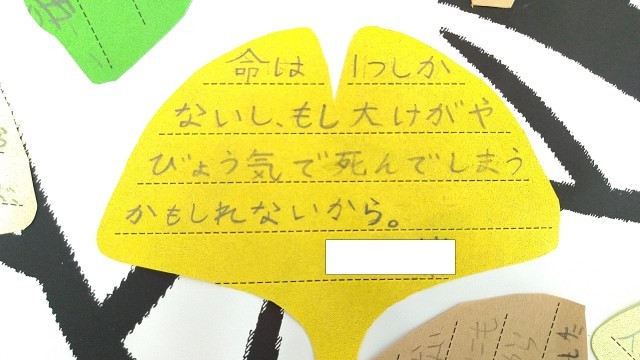 命は 1つしか
ないし、もし大けがや
びょう気で死んでしまう
かもしれないから。